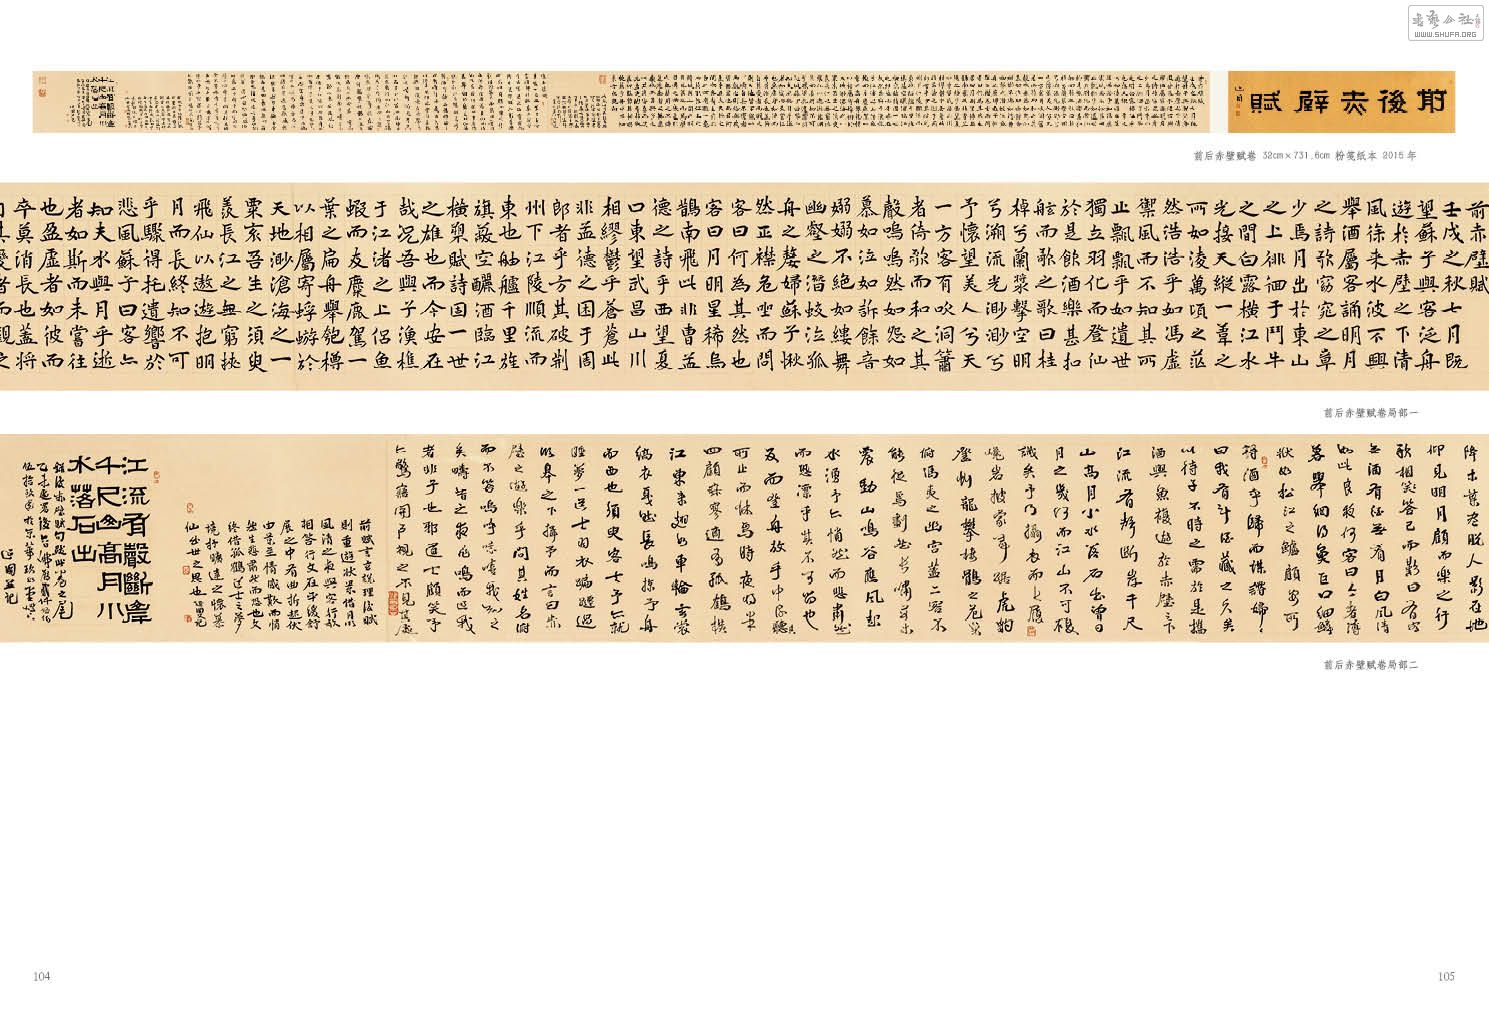 前後赤壁賦
前后赤壁赋卷 32cm×731.6cm 粉笺纸本 2015年
前赤壁賦
壬戌之秋七月既
望蘇子與客泛舟
遊於赤壁之下清
風徐來水波不興
舉酒屬客誦明月
之詩歌窈窕之章
少焉月出於東山
之上徘徊于鬥牛
之間白露橫江水
光接天縱一葦之
所如淩萬頃之茫
然浩浩乎如馮虛
禦風而不知其所
止飄飄乎如遺世
獨立羽化而登仙
於是飲酒樂甚扣
舷而歌之歌曰桂
棹兮蘭槳擊空明
兮溯流光渺渺兮
予懷望美人兮天
一方客有吹洞簫
者倚歌而和之其
聲嗚嗚然如怨如
慕如泣如訴餘音
嫋嫋不絕如縷舞
幽壑之潛蛟泣孤
舟之嫠婦蘇子愀
然正襟危坐而問
客曰何為其然也
客曰月明星稀烏
鵲南飛此非曹孟
德之詩乎西望夏
口東望武昌山川
相繆鬱乎蒼蒼此
非孟德之困于周
郎者乎方其破荊
州下江陵順流而
東也舳艫千里旌
旗蔽空釃酒臨江
橫槊賦詩固一世
之雄也而今安在
哉況吾與子漁樵
于江渚之上侶魚
蝦而友麋鹿駕一
葉之扁舟舉匏樽
以相屬寄蜉蝣於
天地渺滄海之一
粟哀吾生之須臾
羨長江之無窮挾
飛仙以遨遊抱明
月而長終知不可
乎驟得托遺響於
悲風蘇子曰客亦
知夫水與月乎逝
者如斯而未嘗往
也盈虛者如彼而
卒莫消長也蓋將
自其變者而觀之
前后赤壁赋卷局部一
降木葉盡脫人影在地
仰見明月顧而樂之行
歌相答已而歎曰有客
無酒有酒無肴月白風清
如此良夜何客曰今者薄
暮舉網得魚巨口細鱗
狀如松江之鱸顧安所
得酒乎歸而謀諸婦婦
曰我有斗酒藏之久矣
以待子不時之需於是攜
酒與魚複遊於赤壁之下
江流有聲斷岸千尺
山高月小水落石出曾日
月之幾何而江山不可複
識矣予乃攝衣而上履
巉岩披蒙茸踞虎豹
登虯龍攀棲鶻之危巢
俯馮夷之幽宮蓋二客不
能從焉劃然長嘯草木
震動山鳴谷應風起
水湧予亦悄然而悲肅然
而恐凜乎其不可留也
反而登舟放乎中流聽其
所止而休焉時夜將半
四顧寂寥適有孤鶴橫
江東來翅如車輪玄裳
縞衣戛然長鳴掠予舟
而西也須臾客去予亦就
睡夢一道士羽衣蹁躚過
臨皋之下揖予而言曰赤
壁之遊樂乎問其姓名俯
而不答嗚呼噫嘻我知之
矣疇昔之夜飛鳴而過我
者非子也邪道士顧笑予
亦驚寤開戶視之不見其處
前賦言玄說理後賦
則重遊狀景借月明
風清之夜與客行歌
相答行文在平緩舒
展之中有曲折起伏
由樂至情感歎而悄
然生悲肅然而恐也文
終借孤鶴道士之夢
境抒曠達之懷慕
仙出世之思也
江流有聲斷岸
千尺山高月小
水落石出
前后赤壁赋卷局部二
104
105
WWW.SHUFA.ORG